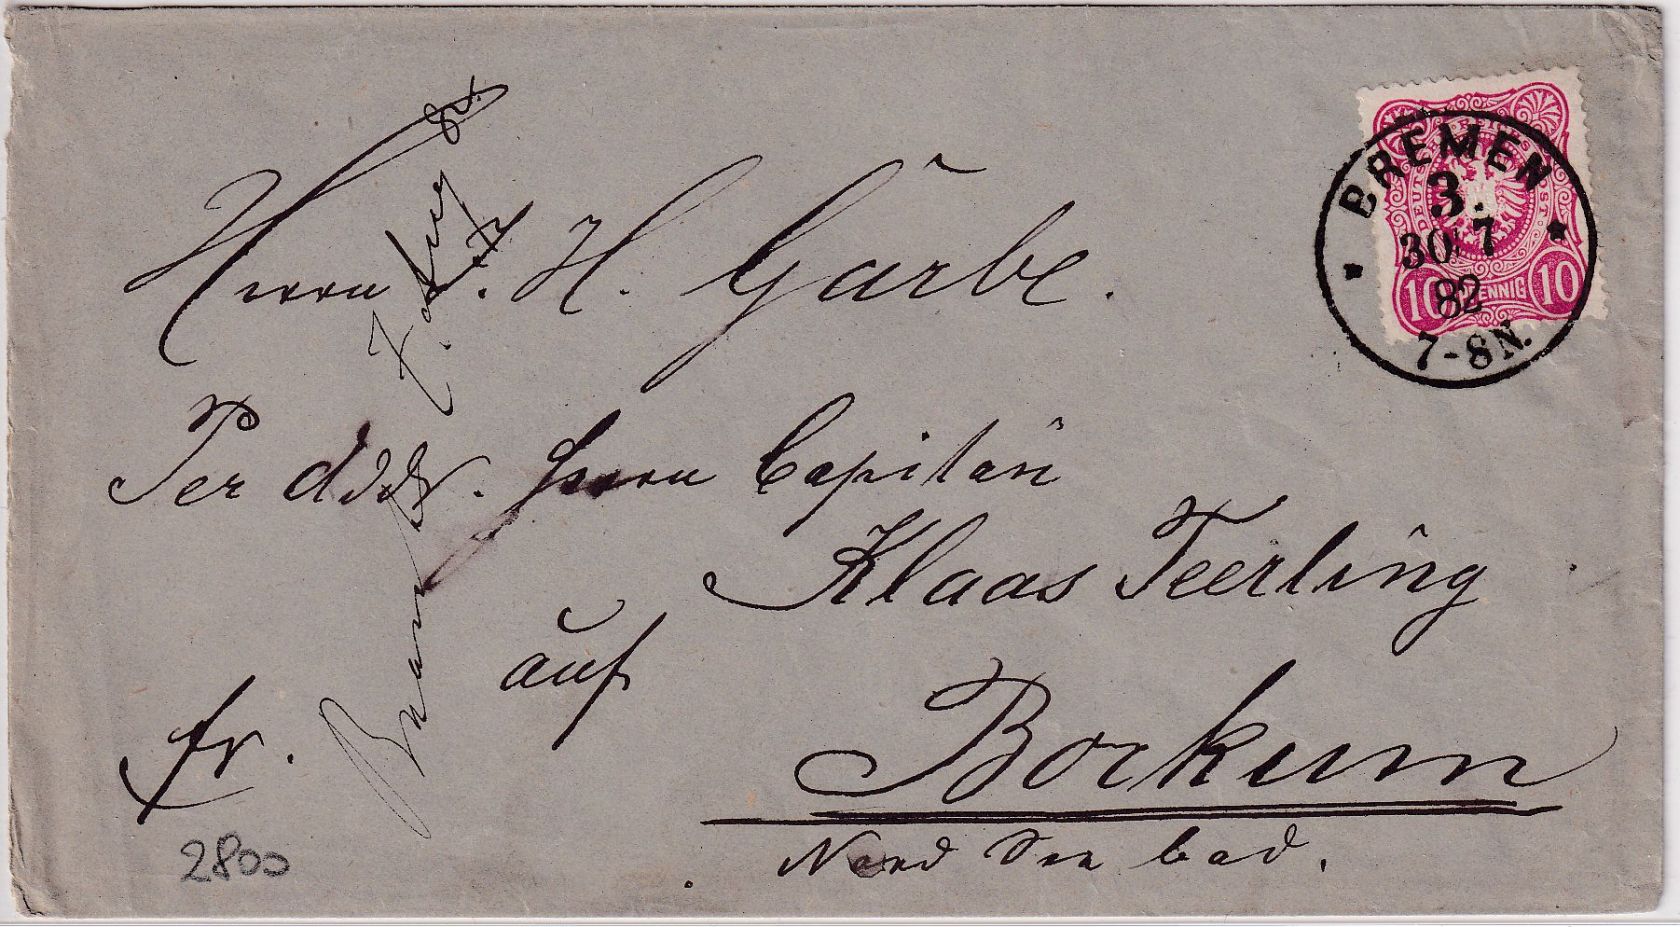 BREMEN
3.
30 7
82
7-8N.
DEUTSCHE REICHS-POST.
10 PFENNIG 10
Herrn H. Garbe.
Per Adr. Herrn Capitän
Klaas Teerling
auf
fr.
Borkum
Nord See bad.
2800